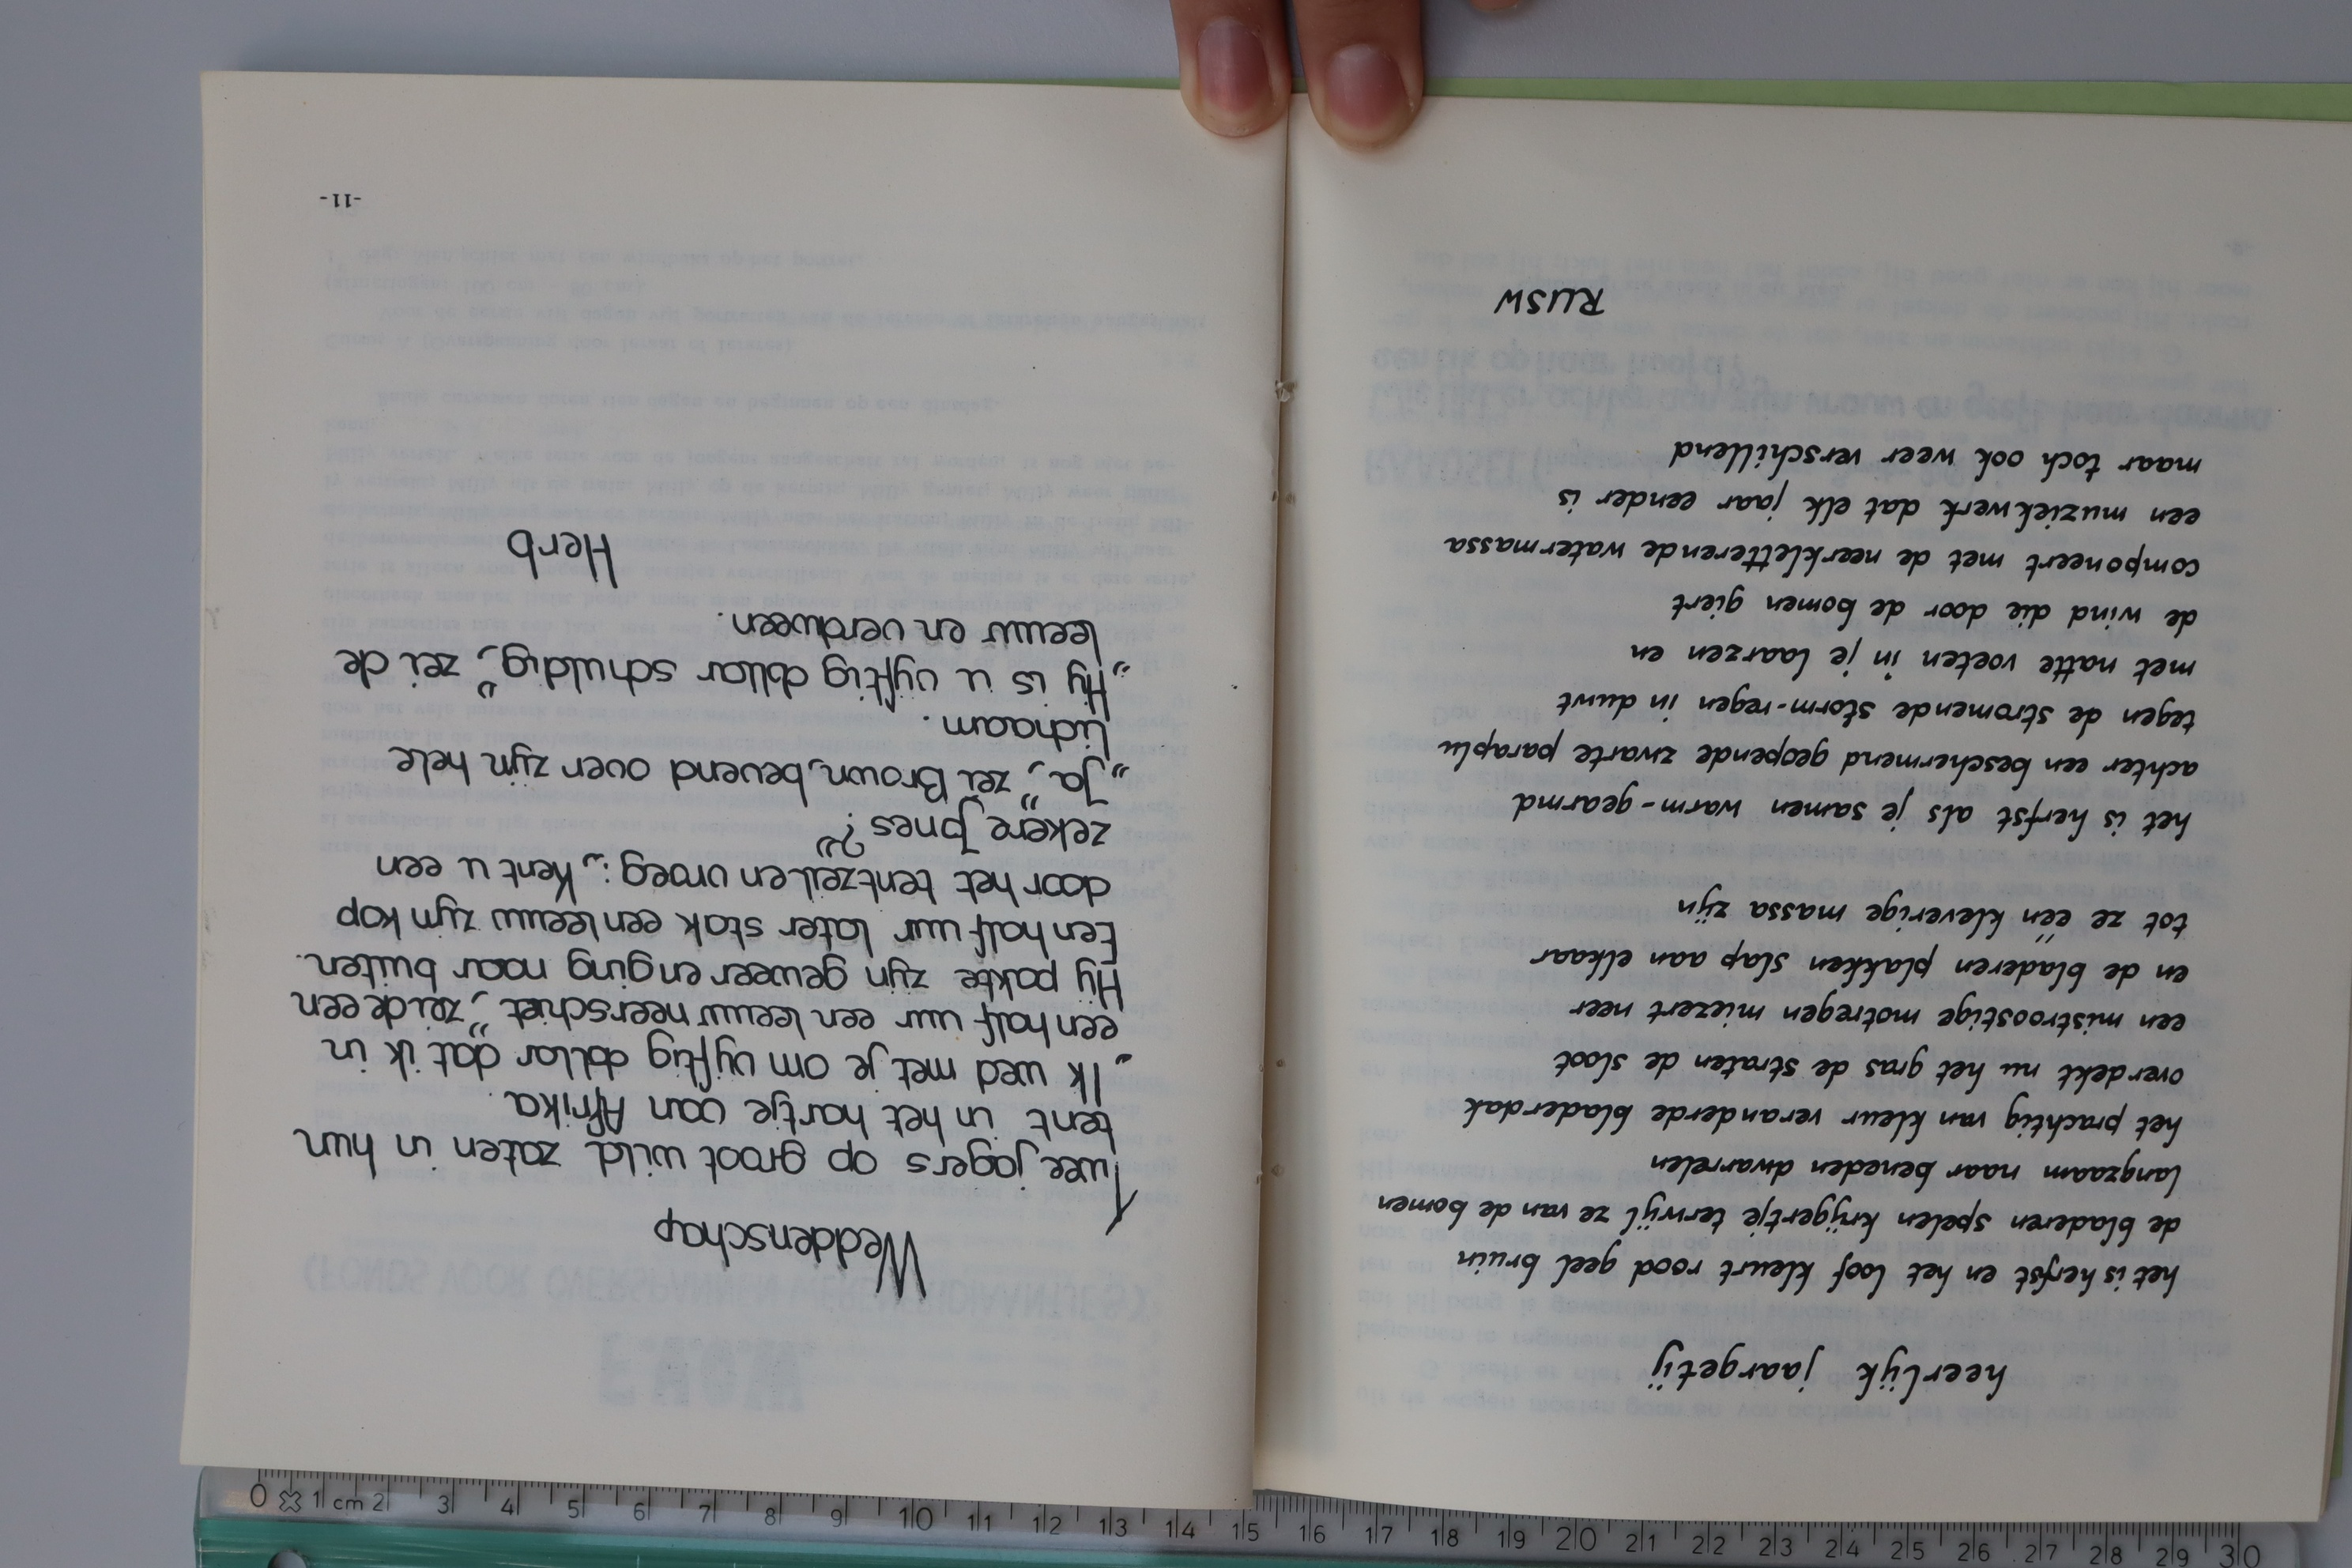 heerlijk jaargetij
het is herfst en het loof kleurt rood geel bruin
de bladeren spelen krijgertje terwijl ze van de bomen
langzaam naar beneden dwarrelen
het prachtig van kleur veranderde bladerdak
overdekt nu het gras de straten de sloot
een mistroostige motregen miezert neer
en de bladeren plakken slap aan elkaar
tot ze één kleverige massa zijn
het is herfst als je samen warm-gearmd
achter een beschermend geopende zwarte paraplu
tegen de stromende storm-regen in duwt
met natte voeten in je laarzen en
de wind die door de bomen giert
componeert met de neerkletterende watermassa
een muziekwerk dat elk jaar eender is
maar toch ook weer verschillend
RUSW
Weddenschap
Twee jagers op groot wild zaten in hun
tent in het hartje van Afrika.
„Ik wed met je om vijftig dollar dat ik in
een half uur een leeuw neerschiet", zei de een
Hij pakte zijn geweer en ging naar buiten.
Een half uur later stak een leeuw zijn kop
door het tentzeil en vroeg: „Kent u een
zekere Jones?"
„Ja", zei Brown, bevend over zijn hele
lichaam.
„Hij is u vijftig dollar schuldig", zei de
leeuw en verdween.
Herb
-11-
0 1 cm 2 3 4 5 6 7 8 9 10 11 12 13 14 15 16 17 18 19 20 21 22 23 24 25 26 27 28 29 30